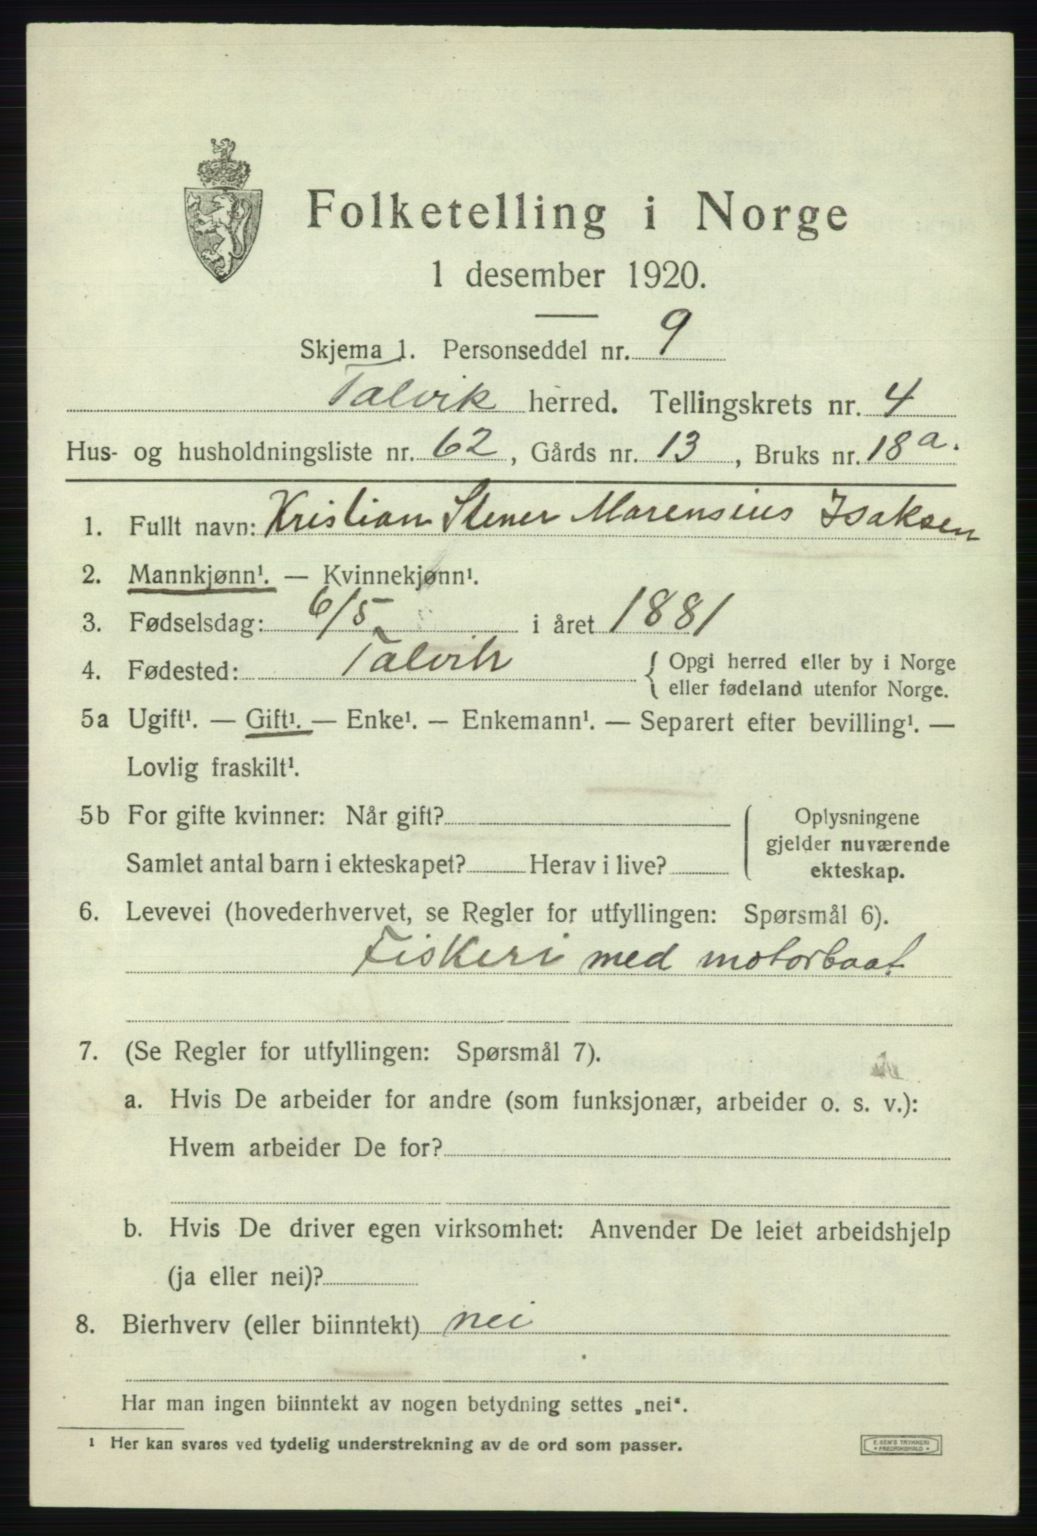 Folketelling i Norge
1 desember 1920.
Skjema 1. Personseddel nr. 9
Talvik herred. Tellingskrets nr. 4
Hus- og husholdningsliste nr. 62, Gårds nr. 13, Bruks nr. 18 a.
1. Fullt navn: Kristian Stener Marensius Isaksen
2. Mannkjønn¹. — Kvinnekjønn¹.
3. Fødselsdag: 6/5 i året 1881
4. Fødested: Talvik { Opgi herred eller by i Norge
eller fødeland utenfor Norge.
5a Ugift¹. — Gift¹. — Enke¹. — Enkemann¹. — Separert efter bevilling¹. —
Lovlig fraskilt¹.
5b For gifte kvinner: Når gift?
Samlet antal barn i ekteskapet? Herav i live?
Oplysningene
gjelder nuværende
ekteskap.
6. Levevei (hovederhvervet, se Regler for utfyllingen: Spørsmål 6).
Fiskeri med motorbaat
7. (Se Regler for utfyllingen: Spørsmål 7).
a. Hvis De arbeider for andre (som funksjonær, arbeider o. s. v.):
Hvem arbeider De for?
b. Hvis De driver egen virksomhet: Anvender De leiet arbeidshjelp
(ja eller nei)?
8. Bierhverv (eller biinntekt) nei
Har man ingen biinntekt av nogen betydning settes „nei“.
¹ Her kan svares ved tydelig understrekning av de ord som passer.